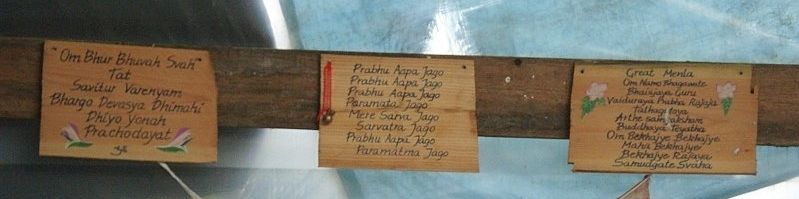 Om Bhur Bhuvah Svah
Tat
Savitur Varenyam
Bhargo Devasya Dhimahi
Dhiyo Yonah
Prachodayat
Prabhu Aapa Jago
Prabhu Aapa Jago
Prabhu Aapa Jago
Paramata Jago
Mere Sarva Jago
Sarvatra Jago
Prabhu Aapa Jago
Paramatma Jago
Great Menla
Om Namo Bhagawate
Bhaisjaya Guru
Vaiduraya Prabha Rajaja
Tathagataya
Arthe samyaksham
Buddhaya Teyatha
Om Bekhajiye Bekhajiye
Maha Bekhajiye
Bekhajiye Rajaya
Samudgate Svaha